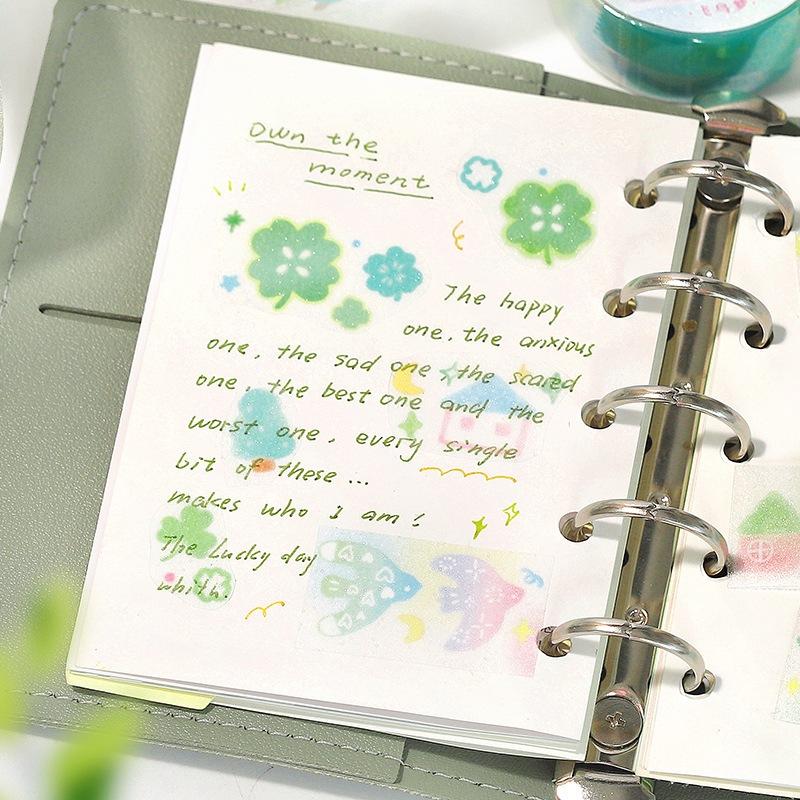 Own the
moment
The happy
one, the anxious
one, the sad one, the scared
one, the best one and the
worst one, every single
bit of these...
makes who I am!
The Lucky day
whith.